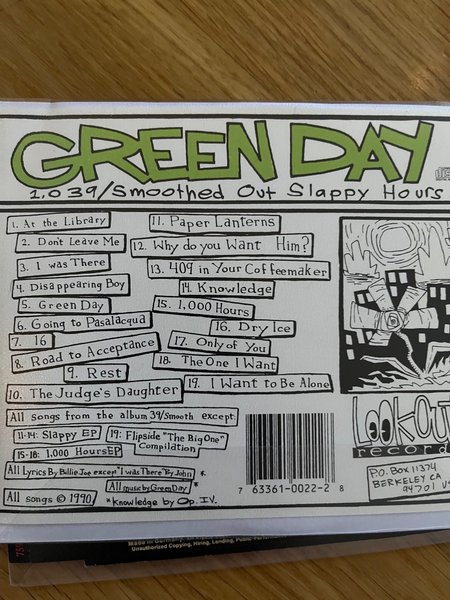 GREEN DAY
1,039/Smoothed Out Slappy Hours
1. At the Library
2. Don't Leave Me
3. I was There
4. Disappearing Boy
5. Green Day
6. Going to Pasalacqua
7. 16
8. Road to Acceptance
9. Rest
10. The Judge's Daughter
11. Paper Lanterns
12. Why do you Want Him?
13. 409 in Your Coffeemaker
14. Knowledge
15. 1,000 Hours
16. Dry Ice
17. Only of You
18. The One I Want
19. I Want to Be Alone
All songs from the album 39/Smooth except:
11-14: Slappy EP
19: Flipside "The Big One" Compilation
15-18: 1,000 Hours EP
All Lyrics By Billie Joe except "I was There" By John
All music by Green Day *
All songs © 1990
*knowledge by Op. IV.
7 63361-0022-2 8
LOOKOUT
records
P.O. BOX 11374
BERKELEY CA
94701 US
Made in Germany.
Unauthorized Copying, Hiring, Lending, Public Performance